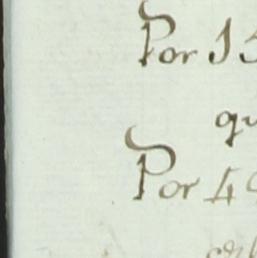 Por 15
qu
Por 4